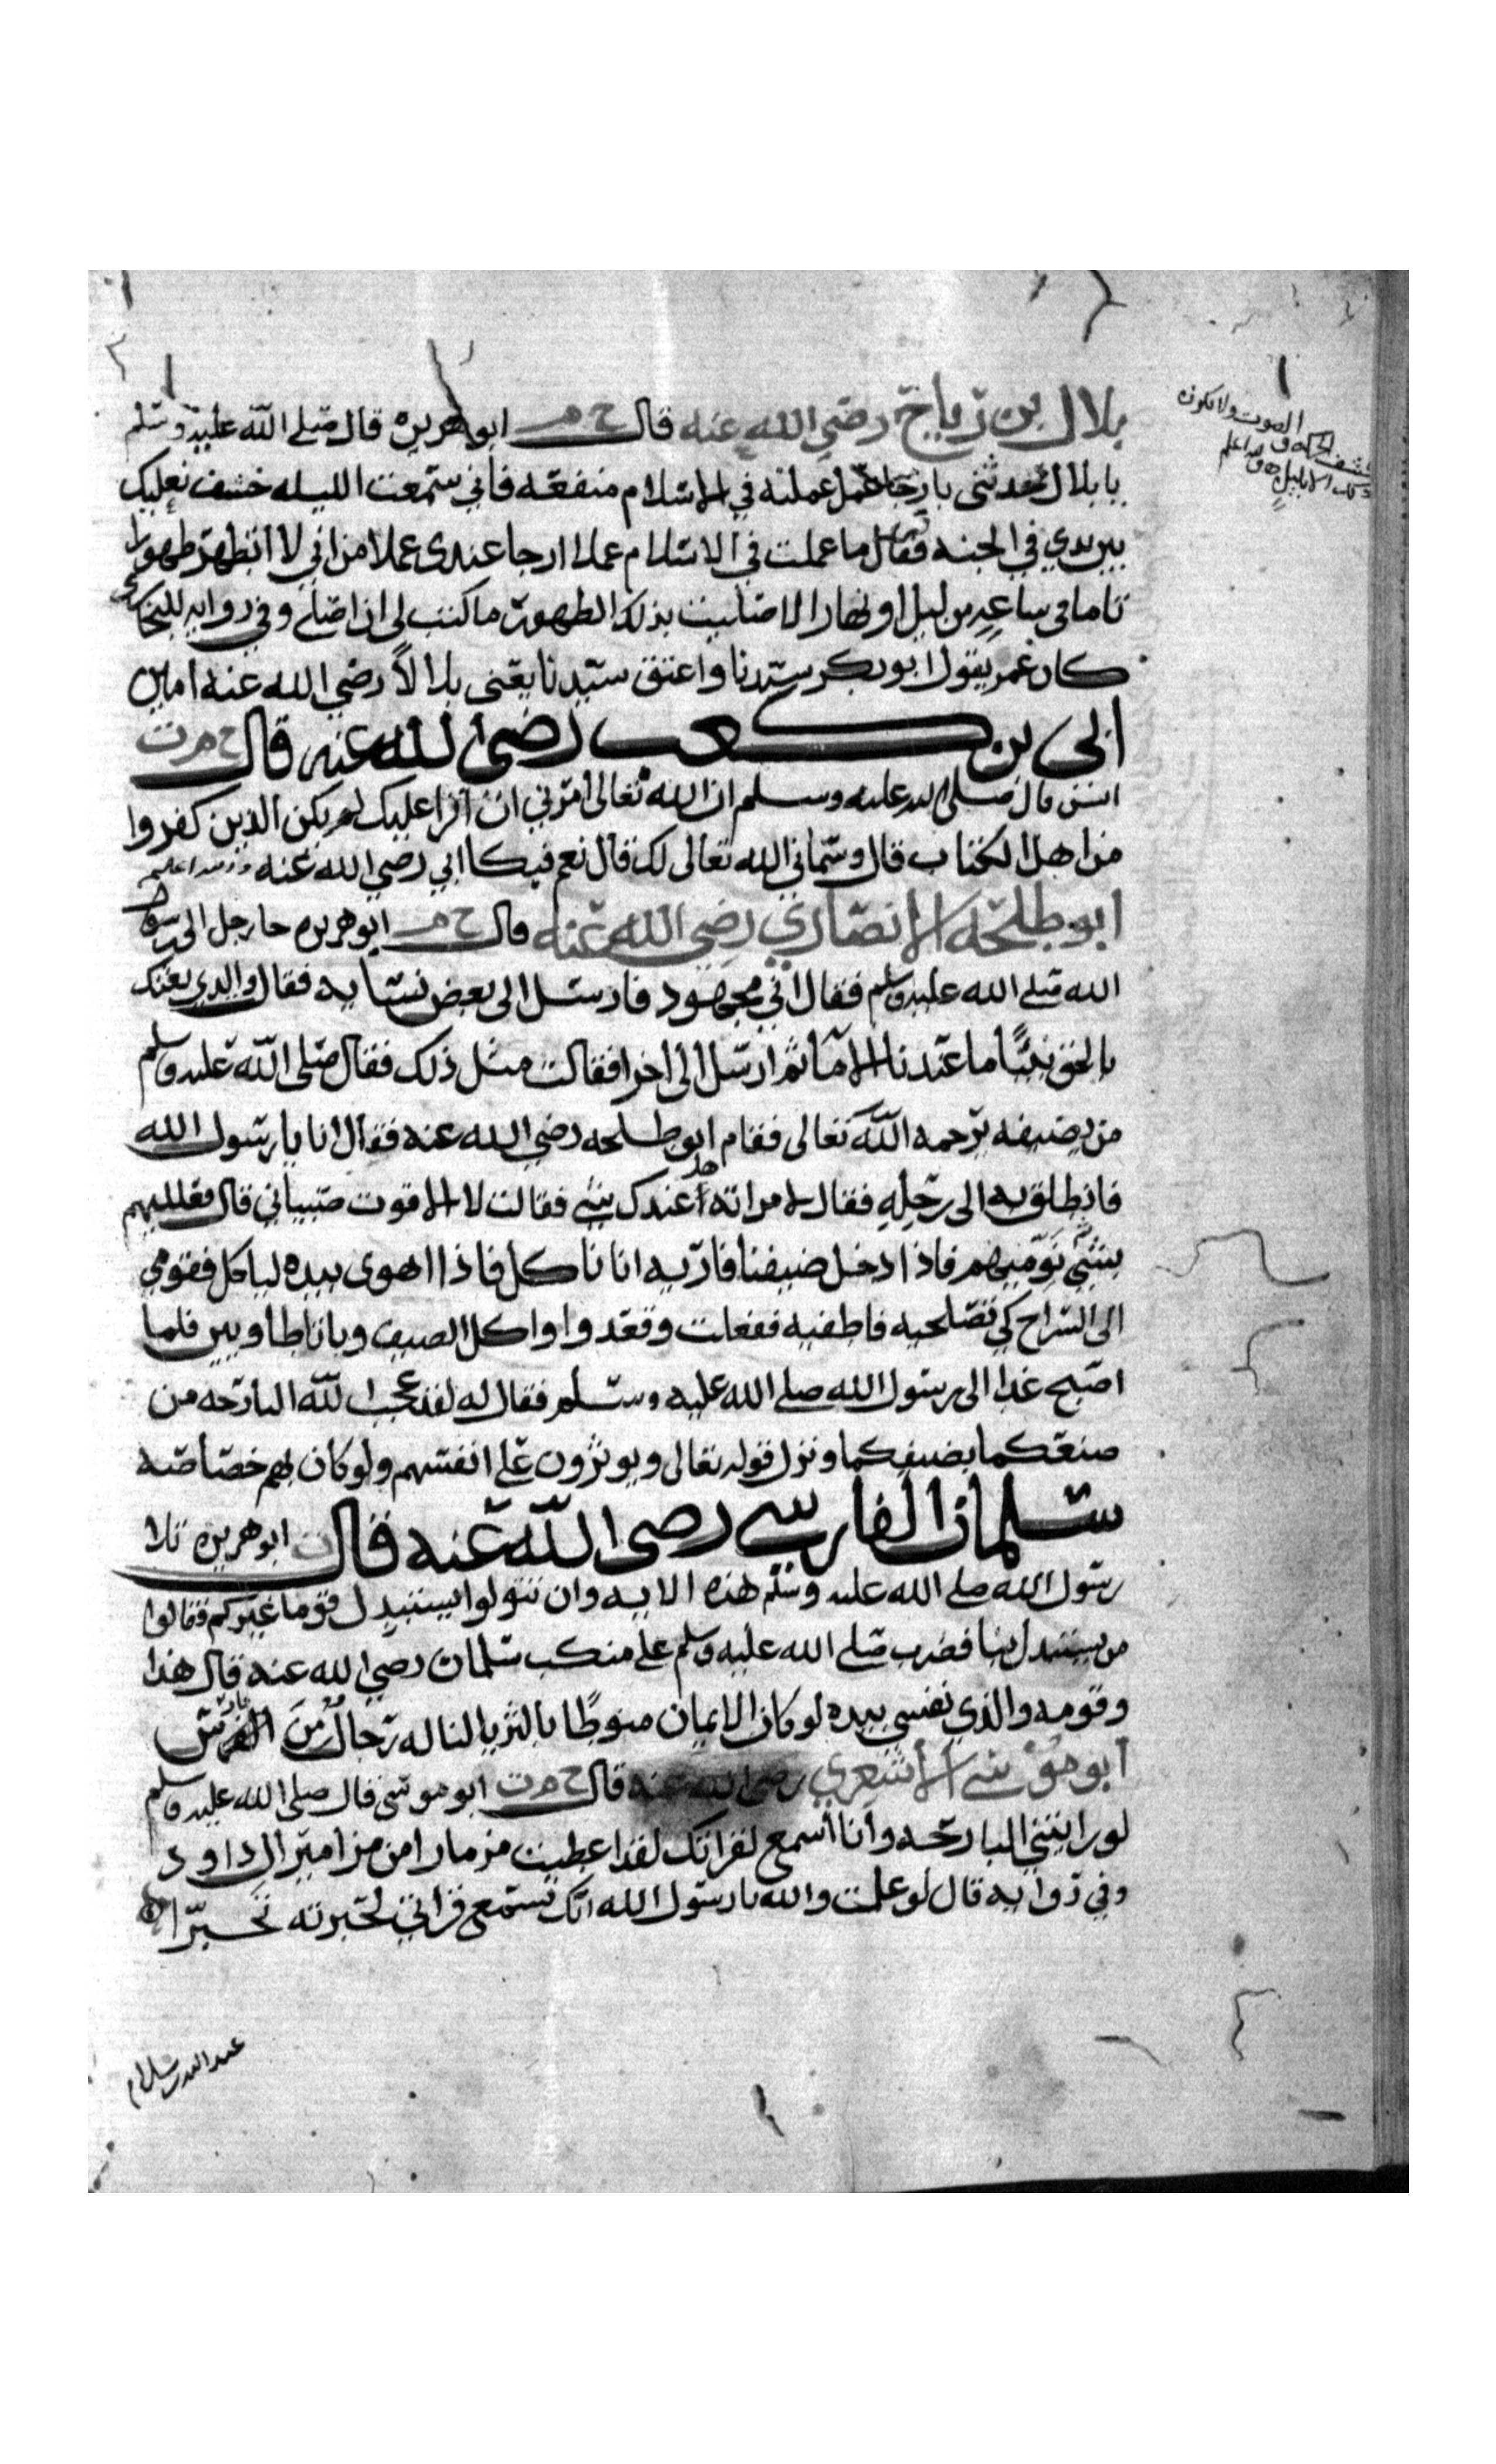 بلال بن رباح رضي الله عنه قال خ م ابو هريره قال صلى الله عليه وسلم
يا بلال حدثني بارجا عمل عملته في الاسلام منفعه فاني سمعت الليله خشف نعليك
بين يدي في الجنه فقال ما عملت في الاسلام عملا ارجا عندي عملا من اني لا اتطهر طهورا
تاما في ساعه من ليل او نهار الا صليت بذلك الطهور ما كتب لي ان اصلي وفي روايه للبخاري
كان عمر يقول ابو بكر سيدنا واعتق سيدنا يعني بلالاً رضي الله عنه امين
ابي بن كعب رضي الله عنه قال خ م ت
انس قال صلى الله عليه وسلم ان الله تعالى امرني ان اقرا عليك لم يكن الذين كفروا
من اهل الكتاب قال وسماني الله تعالى لك قال نعم فبكا ابي رضي الله عنه
ابو طلحه الانصاري رضي الله عنه قال خ م ابو هريره جا رجل الى رسول
الله صلى الله عليه وسلم فقال اني مجهود فارسل الى بعض نسايه فقال والذي بعثك
بالحق نبيًا ما عندنا الا ما ثم ارسل الى اخرا فقالت مثل ذلك فقال صلى الله عليه وسلم
من يضيفه يرحمه الله تعالى فقام ابو طلحه رضي الله عنه فقال انا يا رسول الله
فانطلق به الى رحله فقال لامراته هل عندك شي فقالت لا الا قوت صبياني قال فعلليهم
بشي نوميهم فاذا دخل ضيفنا فاريه انا ناكل فاذا اهوى بيده لياكل فقومي
الى السراج كي تصلحيه فاطفيه ففعلت وقعدوا واكل الضيف وباتا طاويين فلما
اصبح غدا الى رسول الله صلى الله عليه وسلم فقال له لقد عجب الله البارحه من
صنعكما بضيفكما ونزل قوله تعالى ويوثرون على انفسهم ولو كان بهم خصاصه
سلمان الفارسي رضى الله عنه قال ت ابو هريره تلا
رسول الله صلى الله عليه وسلم هذه الايه وان تتولوا يستبدل قوما غيركم فقالوا
من يستبدل بنا فضرب صلى الله عليه وسلم على منكب سلمان رضي الله عنه قال هذا
وقومه والذي نفسي بيده لو كان الايمان منوطًا بالثريا لناله رجال من الفرس
ابو موسى الاشعري رضي الله عنه قال خ م ت ابو موسى قال صلى الله عليه وسلم
لو رايتني البارحه وانا اسمع لقراتك لقد اعطيت مزمارا من مزامير ال داود
وفي روايه قال لو علمت والله يا رسول الله انك تستمع قراتي لحبرته تحبيرًا
عبد الله بن سلام
الصوت ولا يكون